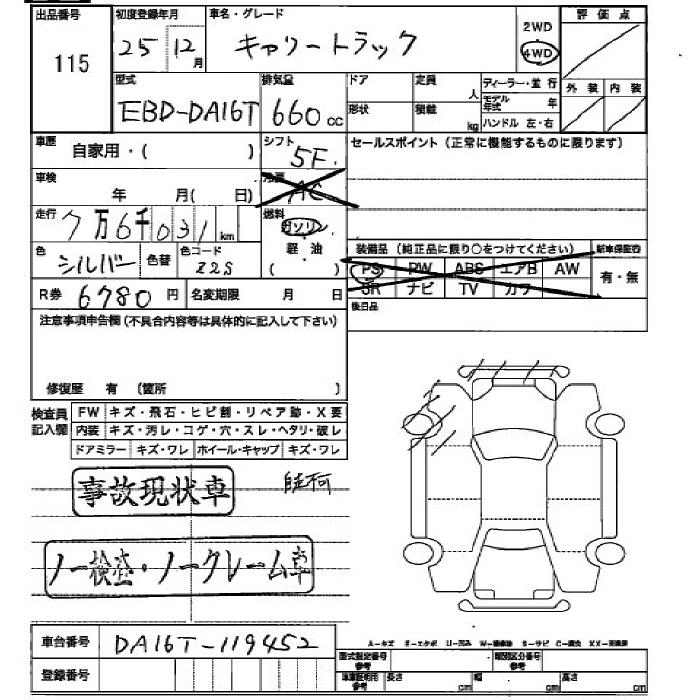 出品番号 初度登録年月 車名・グレード 評価点
115 25 12月 キャリートラック 2WD
4WD
型式 排気量 ドア 定員 人 ディーラー・並行 外装 内装
EBD-DA16T 660cc 形状 積載 kg モデル年式 年
ハンドル 左・右
車歴 自家用・( ) シフト 5F セールスポイント（正常に機能するものに限ります）
車検 年 月( 日) 冷房 AC
走行 7万6千031km 燃料 ガソリン
色 シルバー 色替 色コード Z2S 軽・油 ( ) 装備品（純正品に限り○をつけてください） 新車保証書
PS PW ABS エアB AW 有・無
R券 6780円 名変期限 月 日 SR ナビ TV カワ
後日品
注意事項申告欄（不具合内容等は具体的に記入して下さい）
修復歴 有 （箇所 ）
検査員 FW キズ・飛石・ヒビ割・リペア跡・X要
記入欄 内装 キズ・汚レ・コゲ・穴・スレ・ヘタリ・破レ
ドアミラー キズ・ワレ ホイール・キャップ キズ・ワレ
事故現状車
ノー検査・ノークレーム車
車台番号 DA16T-119452
A－キズ E－エクボ U－凹み W－補修跡 S－サビ C－腐食 XX－交換済
登録番号 型式指定番号 参考 類別区分番号 参考
車庫証明用 参考 長さ cm 幅 cm 高さ cm